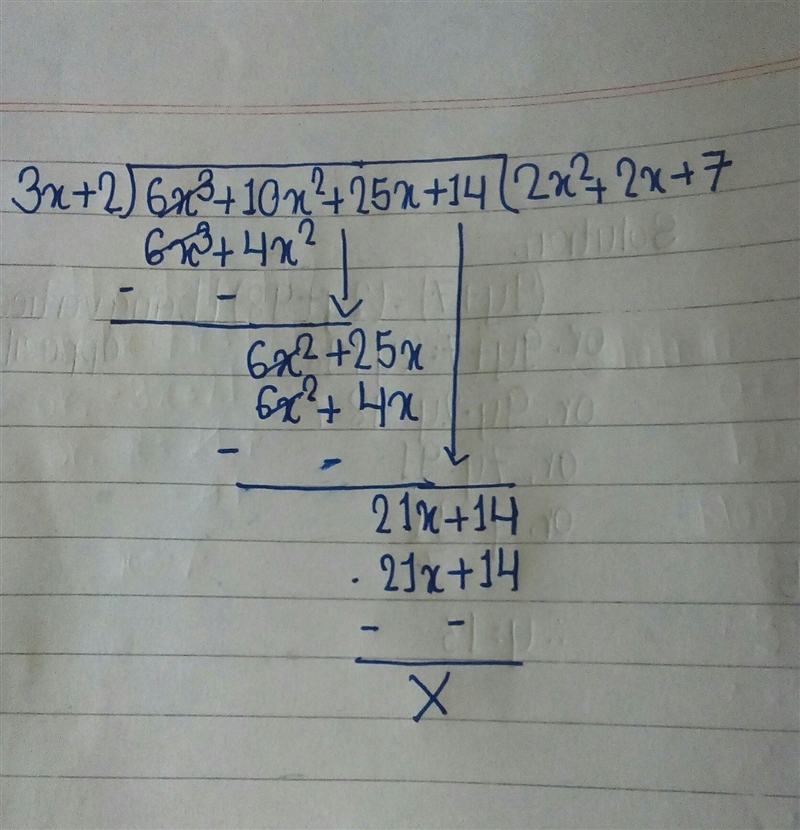 3x+2)6x³+10x²+25x+14(2x²+2x+7
6x³+4x²
- -
6x²+25x
6x²+4x
- -
21x+14
21x+14
- -
X